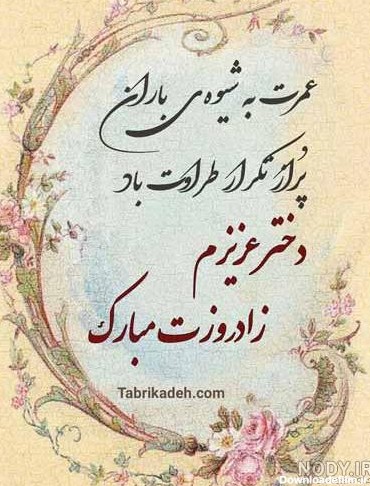 عمرت به شیوه‌ی باران
پُر از تکرار طراوت باد
دختر عزیزم
زادروزت مبارک
Tabrikadeh.com
NODY.IR
Downloadefilm.ir